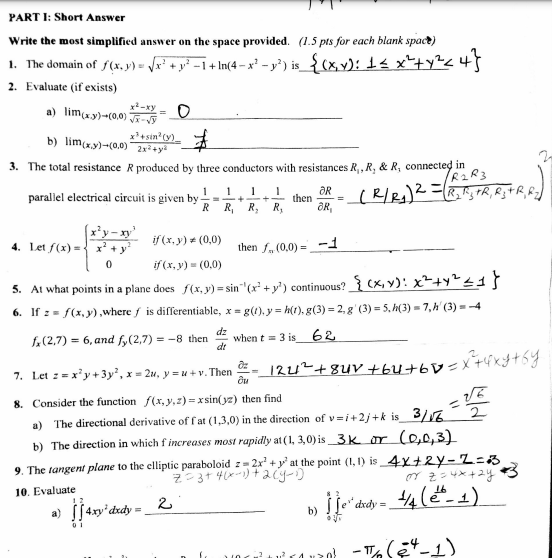 PART I: Short Answer
Write the most simplified answer on the space provided. (1.5 pts for each blank space)
1. The domain of f(x, y) = √(x² + y² − 1) + ln(4 − x² − y²) is {(x,y): 1 ≤ x²+y² < 4}
2. Evaluate (if exists)
a) lim(x,y)→(0,0) (x²−xy)/(√x−√y) = 0
b) lim(x,y)→(0,0) (x³+sin²(y))/(2x²+y²) = ∄
3. The total resistance R produced by three conductors with resistances R₁, R₂ & R₃ connected in
parallel electrical circuit is given by 1/R = 1/R₁ + 1/R₂ + 1/R₃ then ∂R/∂R₁ = (R/R₁)² = (R₂R₃/(R₂R₃+R₁R₃+R₁R₂))²
4. Let f(x) = { (x³y − xy³)/(x² + y²) if (x, y) ≠ (0,0)
0 if (x, y) = (0,0)
then fₓᵧ(0,0) = −1
5. At what points in a plane does f(x, y) = sin⁻¹(x² + y²) continuous? {(x,y): x²+y² ≤ 1}
6. If z = f(x, y), where f is differentiable, x = g(t), y = h(t), g(3) = 2, g'(3) = 5, h(3) = 7, h'(3) = −4
fₓ(2,7) = 6, and fᵧ(2,7) = −8 then dz/dt when t = 3 is 62
7. Let z = x²y + 3y², x = 2u, y = u + v. Then ∂z/∂u = 12u²+8uv+6u+6v = x²+4xy+6y
8. Consider the function f(x, y, z) = x sin(yz) then find
a) The directional derivative of f at (1,3,0) in the direction of v = i + 2j + k is 3/√6 = √6/2
b) The direction in which f increases most rapidly at (1, 3,0) is 3k or (0,0,3)
9. The tangent plane to the elliptic paraboloid z = 2x² + y² at the point (1, 1) is 4x+2y−z=3
z = 3+4(x−1)+2(y−1) or z=4x+2y−3
10. Evaluate
a) ∫₀¹∫₁² 4xy² dxdy = 2
b) ∫₀⁸∫ e^(x⁴) dxdy = 1/4(e¹⁶−1)
(e⁻⁴−1)